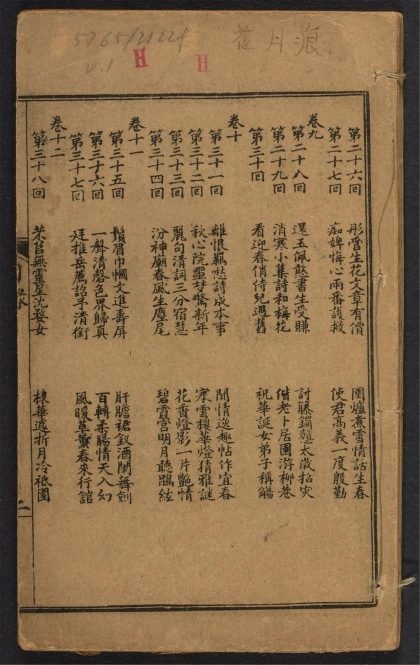 5765/2122.8
v.1
H
H
花月痕
第二十六回 彤管生花文章有價 圍爐煮雪情話生春
第二十七回 痴婢悔心兩番護救 使君高義一度殷勤
卷九
第二十八回 還玉佩憨書生受賺 討籐鐲戇太歲招災
第二十九回 消寒小集詩和梅花 偕老卜居園游柳巷
第三十回 看迎春俏侍兒遇舊 祝華誕女弟子稱觴
卷十
第三十一回 離恨羈愁詩成本事 閒情逸趣帖作宜春
第三十二回 秋心院噩梦驚新年 搴雲樓華燈猜雅謎
第三十三回 麗句清詞三分宿慧 花香燈影一片艶情
第三十四回 汾神廟春風生麈尾 碧霄宮明月聽鵾絃
卷十一
第三十五回 鬚眉巾幗文進壽屏 肝膽裙釵酒闌舞劍
第三十六回 一聲清磬色界歸真 百轉柔腸情天入幻
第三十七回 廷推岳薦詔予清銜 風暖草薰春來行館
卷十二
第三十八回 芣苢無靈星沈婺女 棣華遽折月冷祗園
二